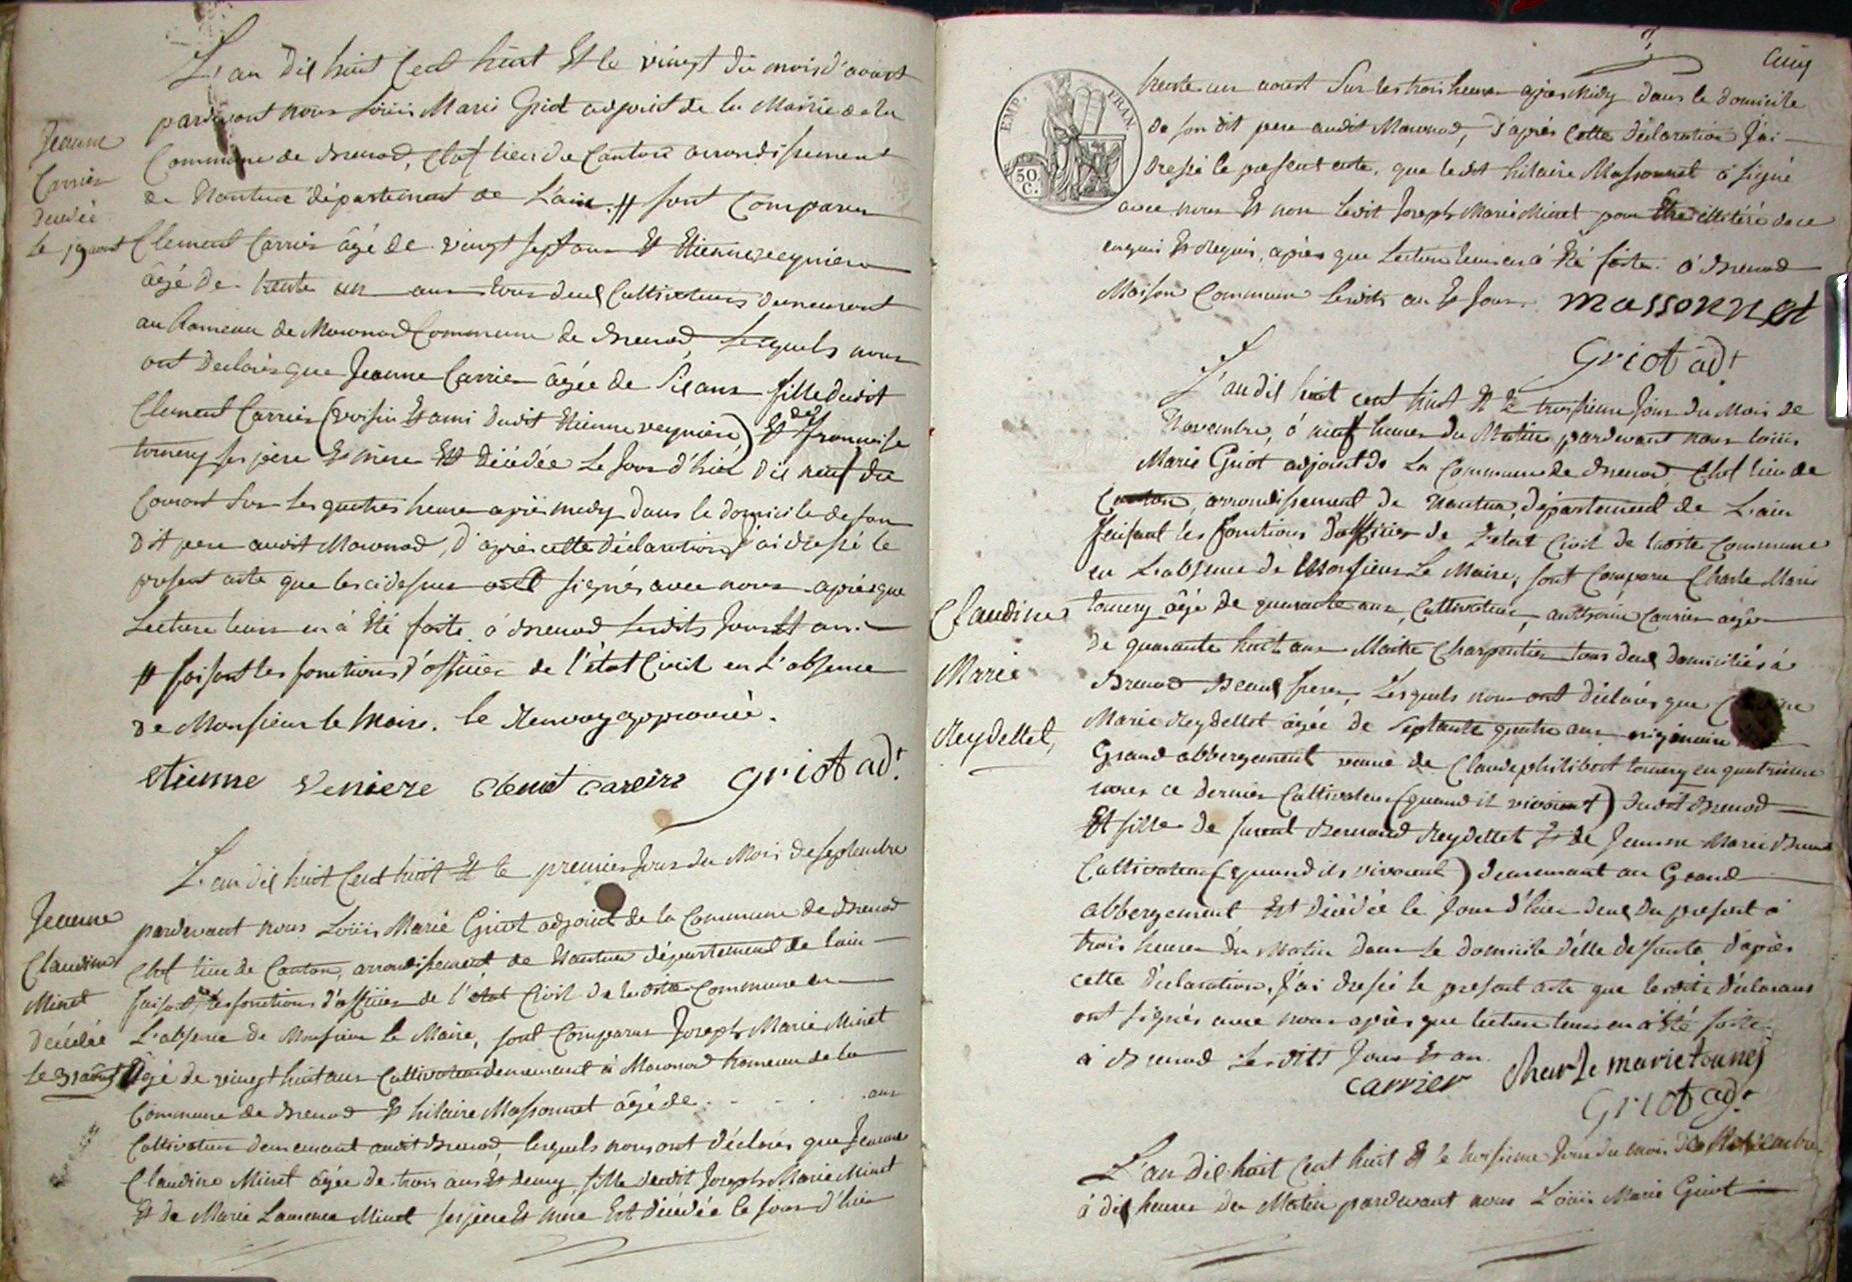 L'an dil huit Cent huit Et le vingt du mois d'aoust
pardevant nous Loüis Marie Griot adjoint de la Mairie de la
Commune de Brenod, Chef lieu de Canton arrondissement
de Nantua département de L'ain. # sont Comparus
Clement Carrier âgé de vingt sept ans Et Etienne veyniere
âgé de trente un ans tous deux Cultivateurs demeurant
au hameau de Macconod Commune de Brenod, Lesquels nous
ont Declarés que Jeanne Carrier âgée de Sil ans fille dudit
Clement Carrier (voisin Et ami dudit Etienne veyniere) Et de françoise
tournery ses père Et mère Est décédée Le Jour d'hier dil neuf du
Courant Sur les quatres heure après midy dans le domicile de son
dit pere audit Macconod, d'après cette déclaration J'ai dressé le
present acte que les cidessus ont signés avec nous après que
Lecture leurs en à Eté faite à Brenod Lesdits Jour Et an.
# faisant les fonctions d'officier de l'état Civil en L'absence
de Monsieur le Maire. le Renvoy approuvée.
etienne Veniere clemet careire griot adt.
Jeanne
Carrier
décédée
le 19 aout
L'an dil huit Cent huit Et le premier Jour du Mois de septembre
pardevant nous Loüis Marie Griot adjoint de la Commune de Brenod
Chef lieu de Canton, arrondissement de Nantua département de lain
faisant les fonctions d'officier de l'état Civil de ladite Commune en
L'absence de Monsieur le Maire, sont Comparus Joseph Marie Minet
âgé de vingt huit ans Cultivateur demeurant à Macconod hameau de la
Commune de Brenod Et hilaire Massonnet âgé de . . . . . ans
Cultivateur demeurant audit Brenod, lesquels nous ont déclarés que Jeanne
Claudine Minet âgée de trois ans Et demy fille dudit Joseph Marie Minet
Et de Marie Laurence Minet ses père Et mère Est décédée le jour d'hier
Jeanne
Claudine
Minet
décédée
le 31 août
cinq
EMP. FRAN.
50.
C.
trente un aoust Sur les trois heures après Midy dans le domicile
de son dit pere audit Macconod, D'après cette déclaration J'ai
dressé le present acte, que ledit hilaire Massonnet à signé
avec nous Et non Ledit Joseph Marie Minet pour Etre illitéré de ce
enquis Et requis, après que Lecture leurs en à Eté faite à Brenod
Maison Commune Lesdits an Et Jour. massonnet
Griot adt.
L'an dil huit cent huit Et le troisieme Jour du Mois de
Novembre, à neuf heures du Matin pardevant nous Loüis
Marie Griot adjoint de La Commune de Brenod Chef lieu de
Canton, arrondissement de Nantua, département de L'ain
faisant les fonctions d'officier de L'état Civil de ladite Commune
en L'absence de Monsieur Le Maire, sont Comparu Charle Marie
tournery âgé de quarante ans, Cultivateur, antoine Carrier âgé
de quarante huit ans Maitre Charpentier tous deux domiciliés à
Brenod Beaux freres, Lesquels nous ont déclarés que
Marie Reydellet âgée de septante quatre ans originaire
Grand abbergement veuve de Claude philibert tournery en quatrieme
noces ce dernier Cultivateur (quand il vivoient) dudit Brenod
Et fille de furent Bernard Reydellet Et de Jeanne Marie
Cultivateur (quand ils vivoient) demeurant au Grand
abbergement Est décédée le Jour d'hier deux du présent à
trois heures du Matin dans le domicile d'elle deffunte, d'après
cette déclaration, J'ai dressé le present acte que lesdits déclarans
ont signés avec nous après que lecture leurs en à Eté faite
à Brenod Lesdits Jour Et an.
carrier Charle marie tounej
Griot adt.
Claudine
Marie
Reydellet,
L'an dil huit Cent huit Et le troisieme Jour du mois de Novembre
à dix heures du Matin pardevant nous Loüis Marie Griot